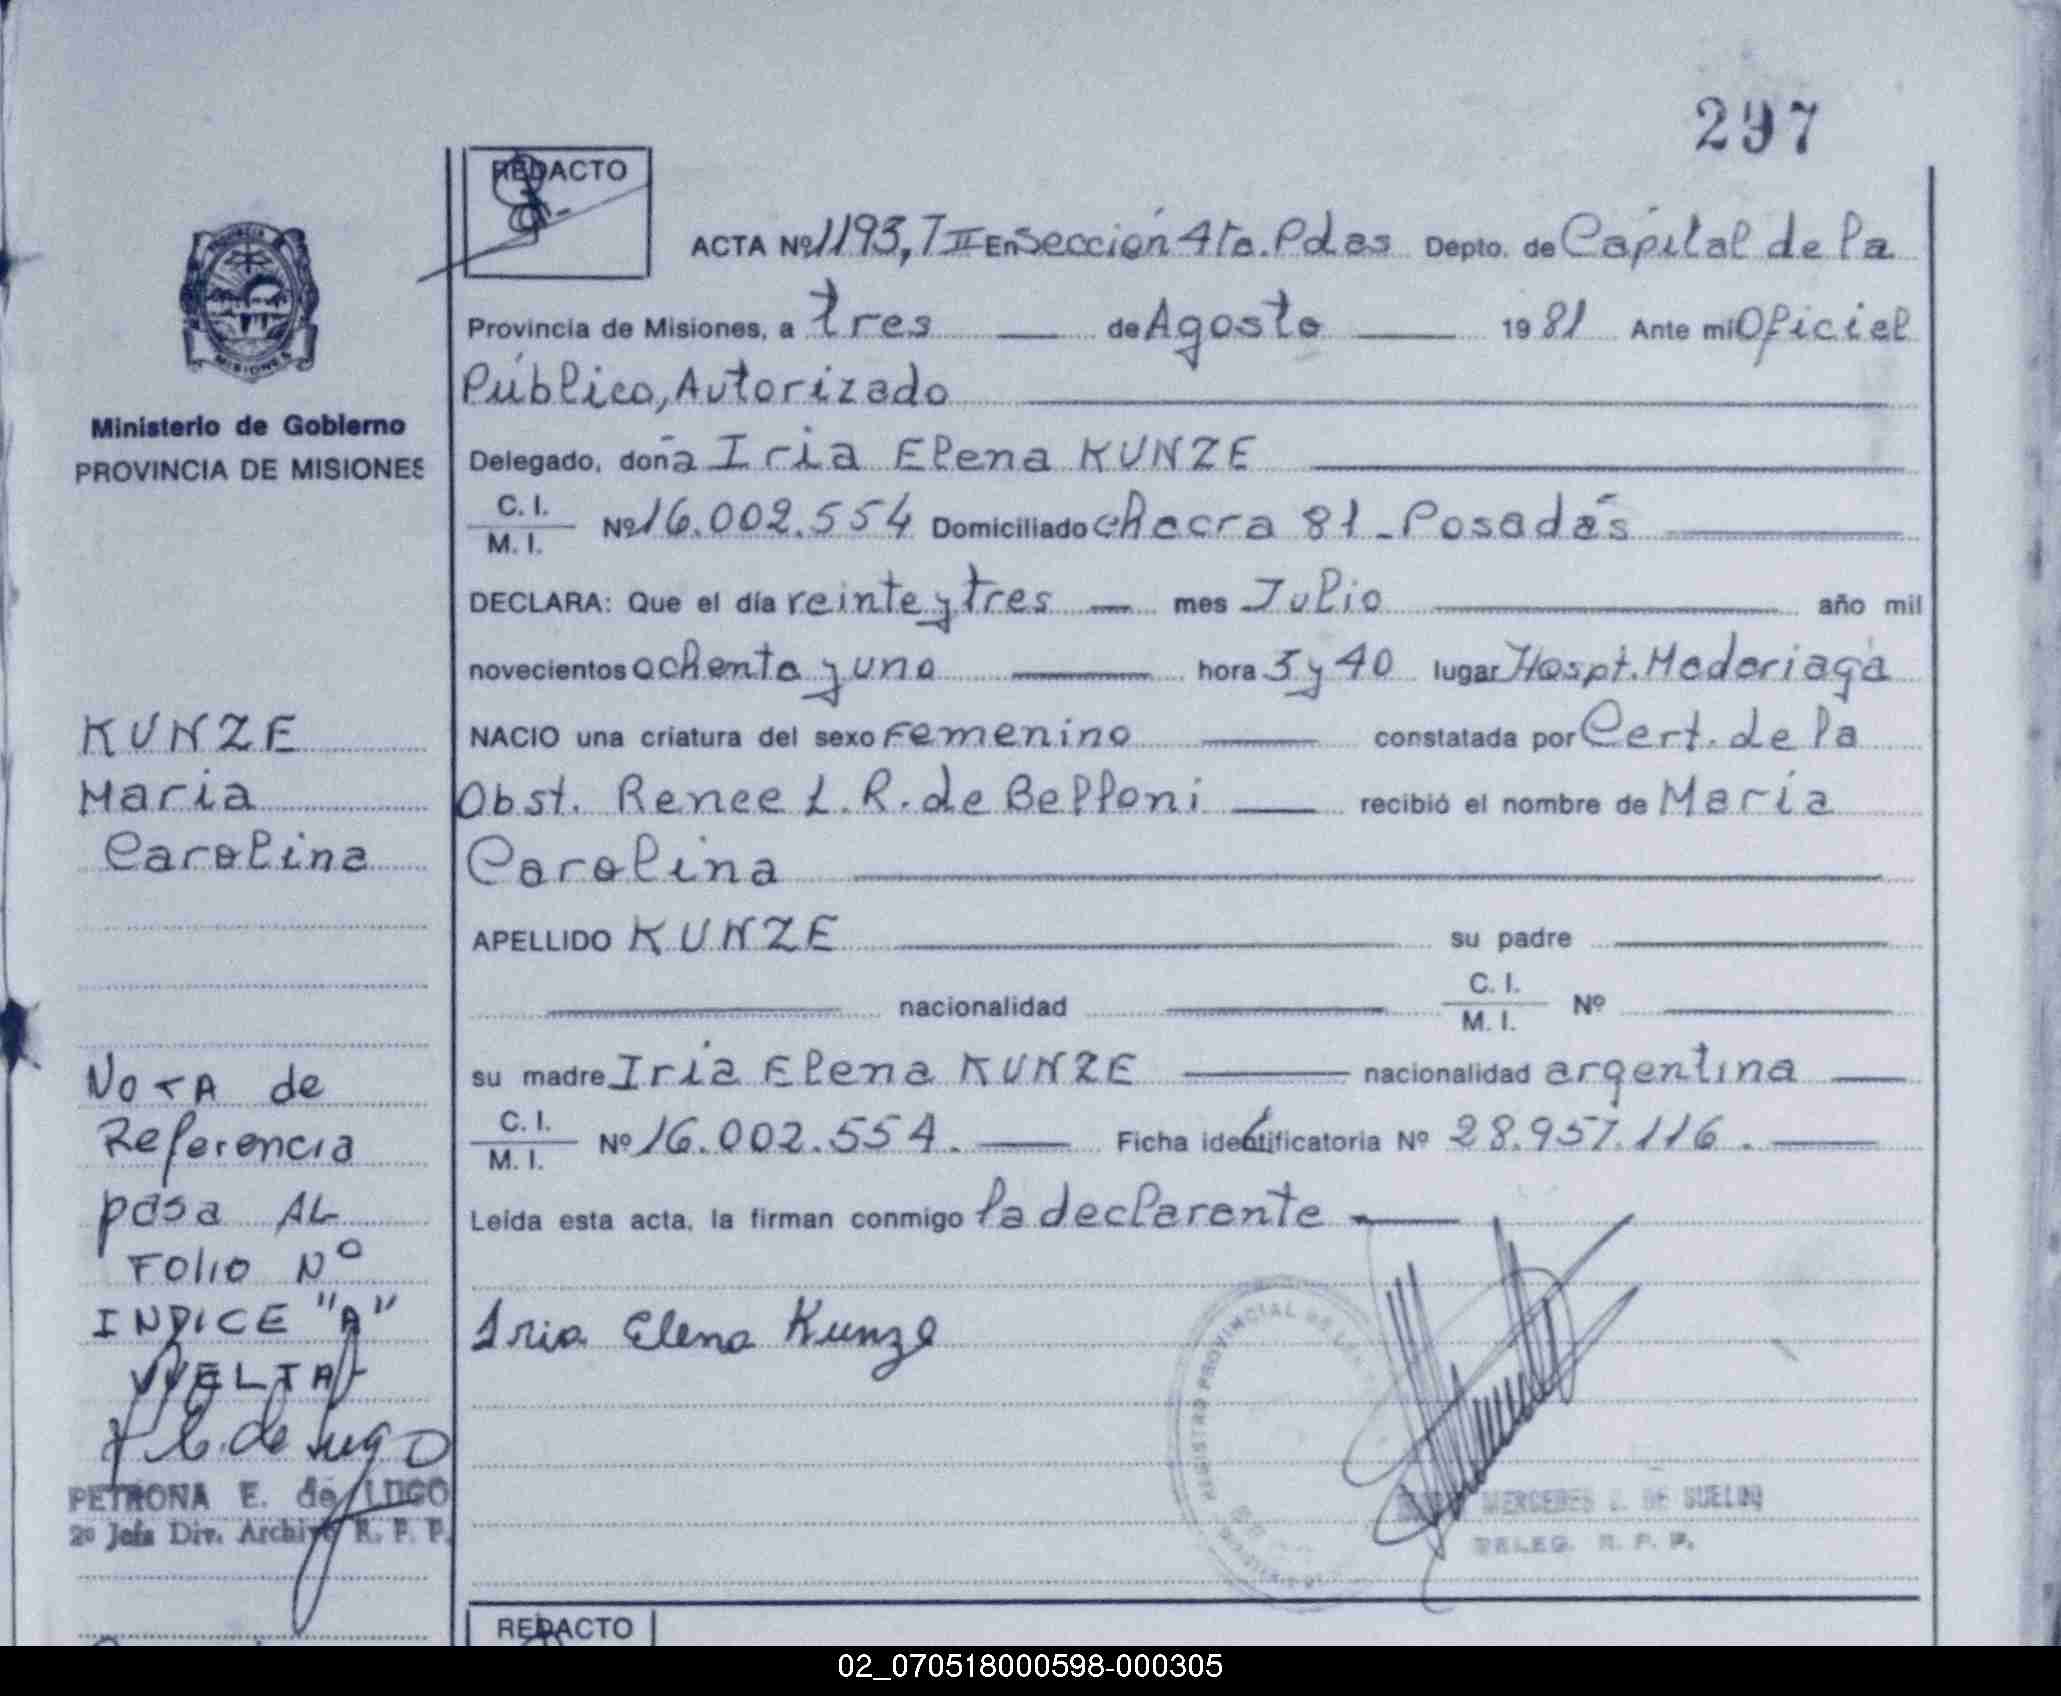 297
REDACTO
ACTA Nº 1193, T II En Sección 4ta. Pdas Depto. de Capital de la
Provincia de Misiones, a tres de Agosto 1981 Ante mi Oficial
Público, Autorizado
Delegado, doña Iria Elena KUNZE
C. I.
M. I. Nº 16.002.554 Domiciliado chacra 81 - Posadas
DECLARA: Que el día veinte y tres mes Julio año mil
novecientos ochenta y uno hora 3 y 40 lugar Hospt. Madariaga
NACIO una criatura del sexo Femenino constatada por Cert. de la
Obst. Renee L. R. de Belloni recibió el nombre de María
Carolina
APELLIDO KUNZE su padre
nacionalidad C. I.
M. I. Nº
su madre Iria Elena KUNZE nacionalidad argentina
C. I.
M. I. Nº 16.002.554. Ficha identificatoria Nº 28.957.116.
Leída esta acta, la firman conmigo la declarante
Iria Elena Kunze
REGISTRO PROVINCIAL DE LAS
MERCEDES DE
DELEG. R. P. P.
PROVINCIA
MISIONES
Ministerio de Gobierno
PROVINCIA DE MISIONES
KUNZE
Maria
Carolina
NOTA de
Referencia
pasa AL
FOLIO Nº
INDICE "A"
VUELTA
P E. de Lugo
PETRONA E. de LUGO
2º Jefa Div. Archivo R. P. P.
REDACTO
02_070518000598-000305